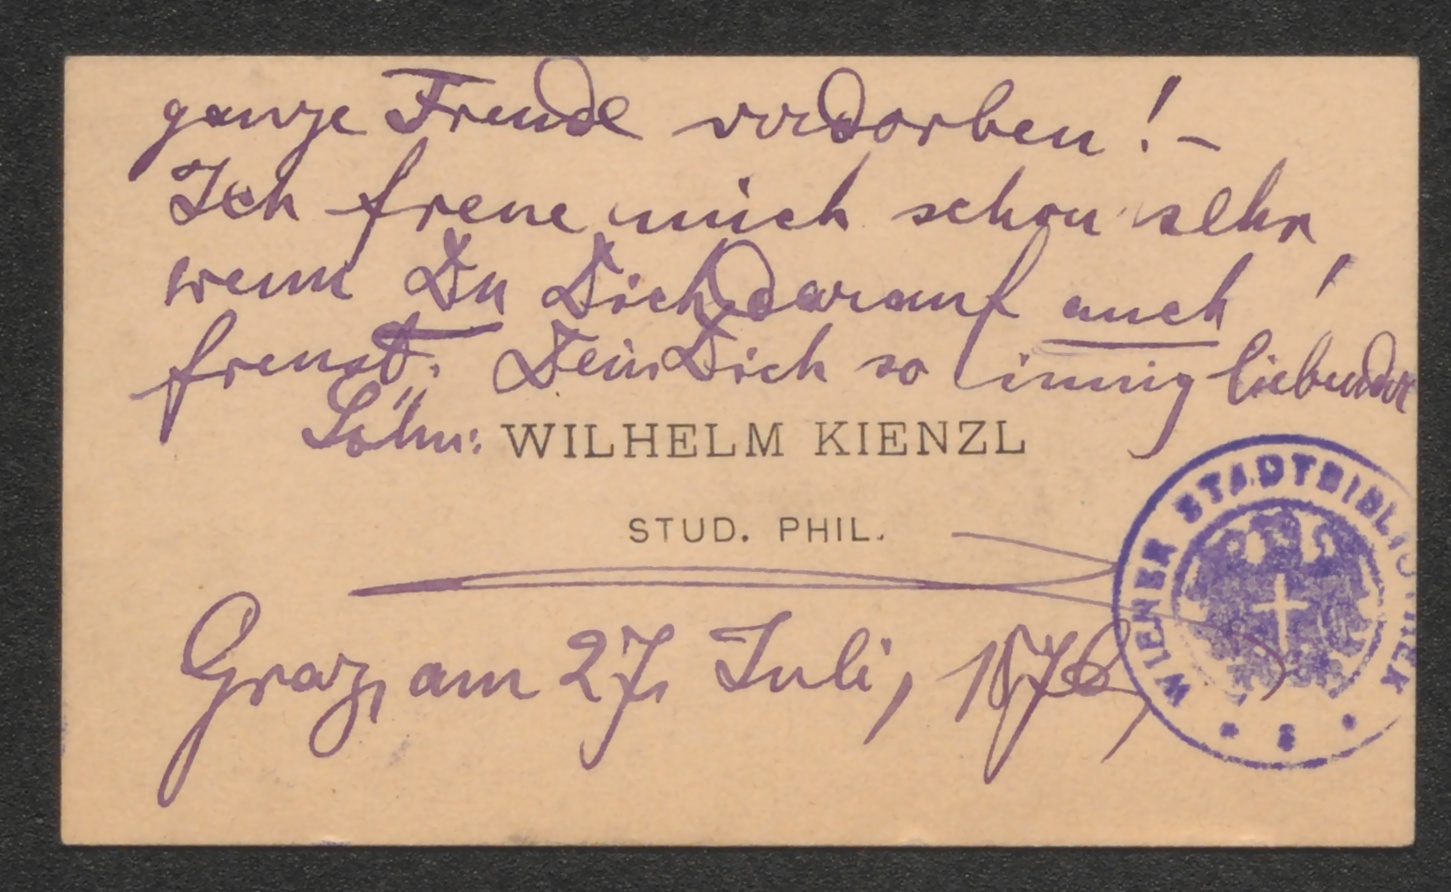 ganze Freude verdorben! -
Ich freue mich schon sehr,
wenn Du Dich darauf auch
freust. Dein Dich so innig liebender
Sohn:
WILHELM KIENZL
STUD. PHIL.
Graz, am 27. Juli, 1876,
WIENER STADTBIBLIOTHEK